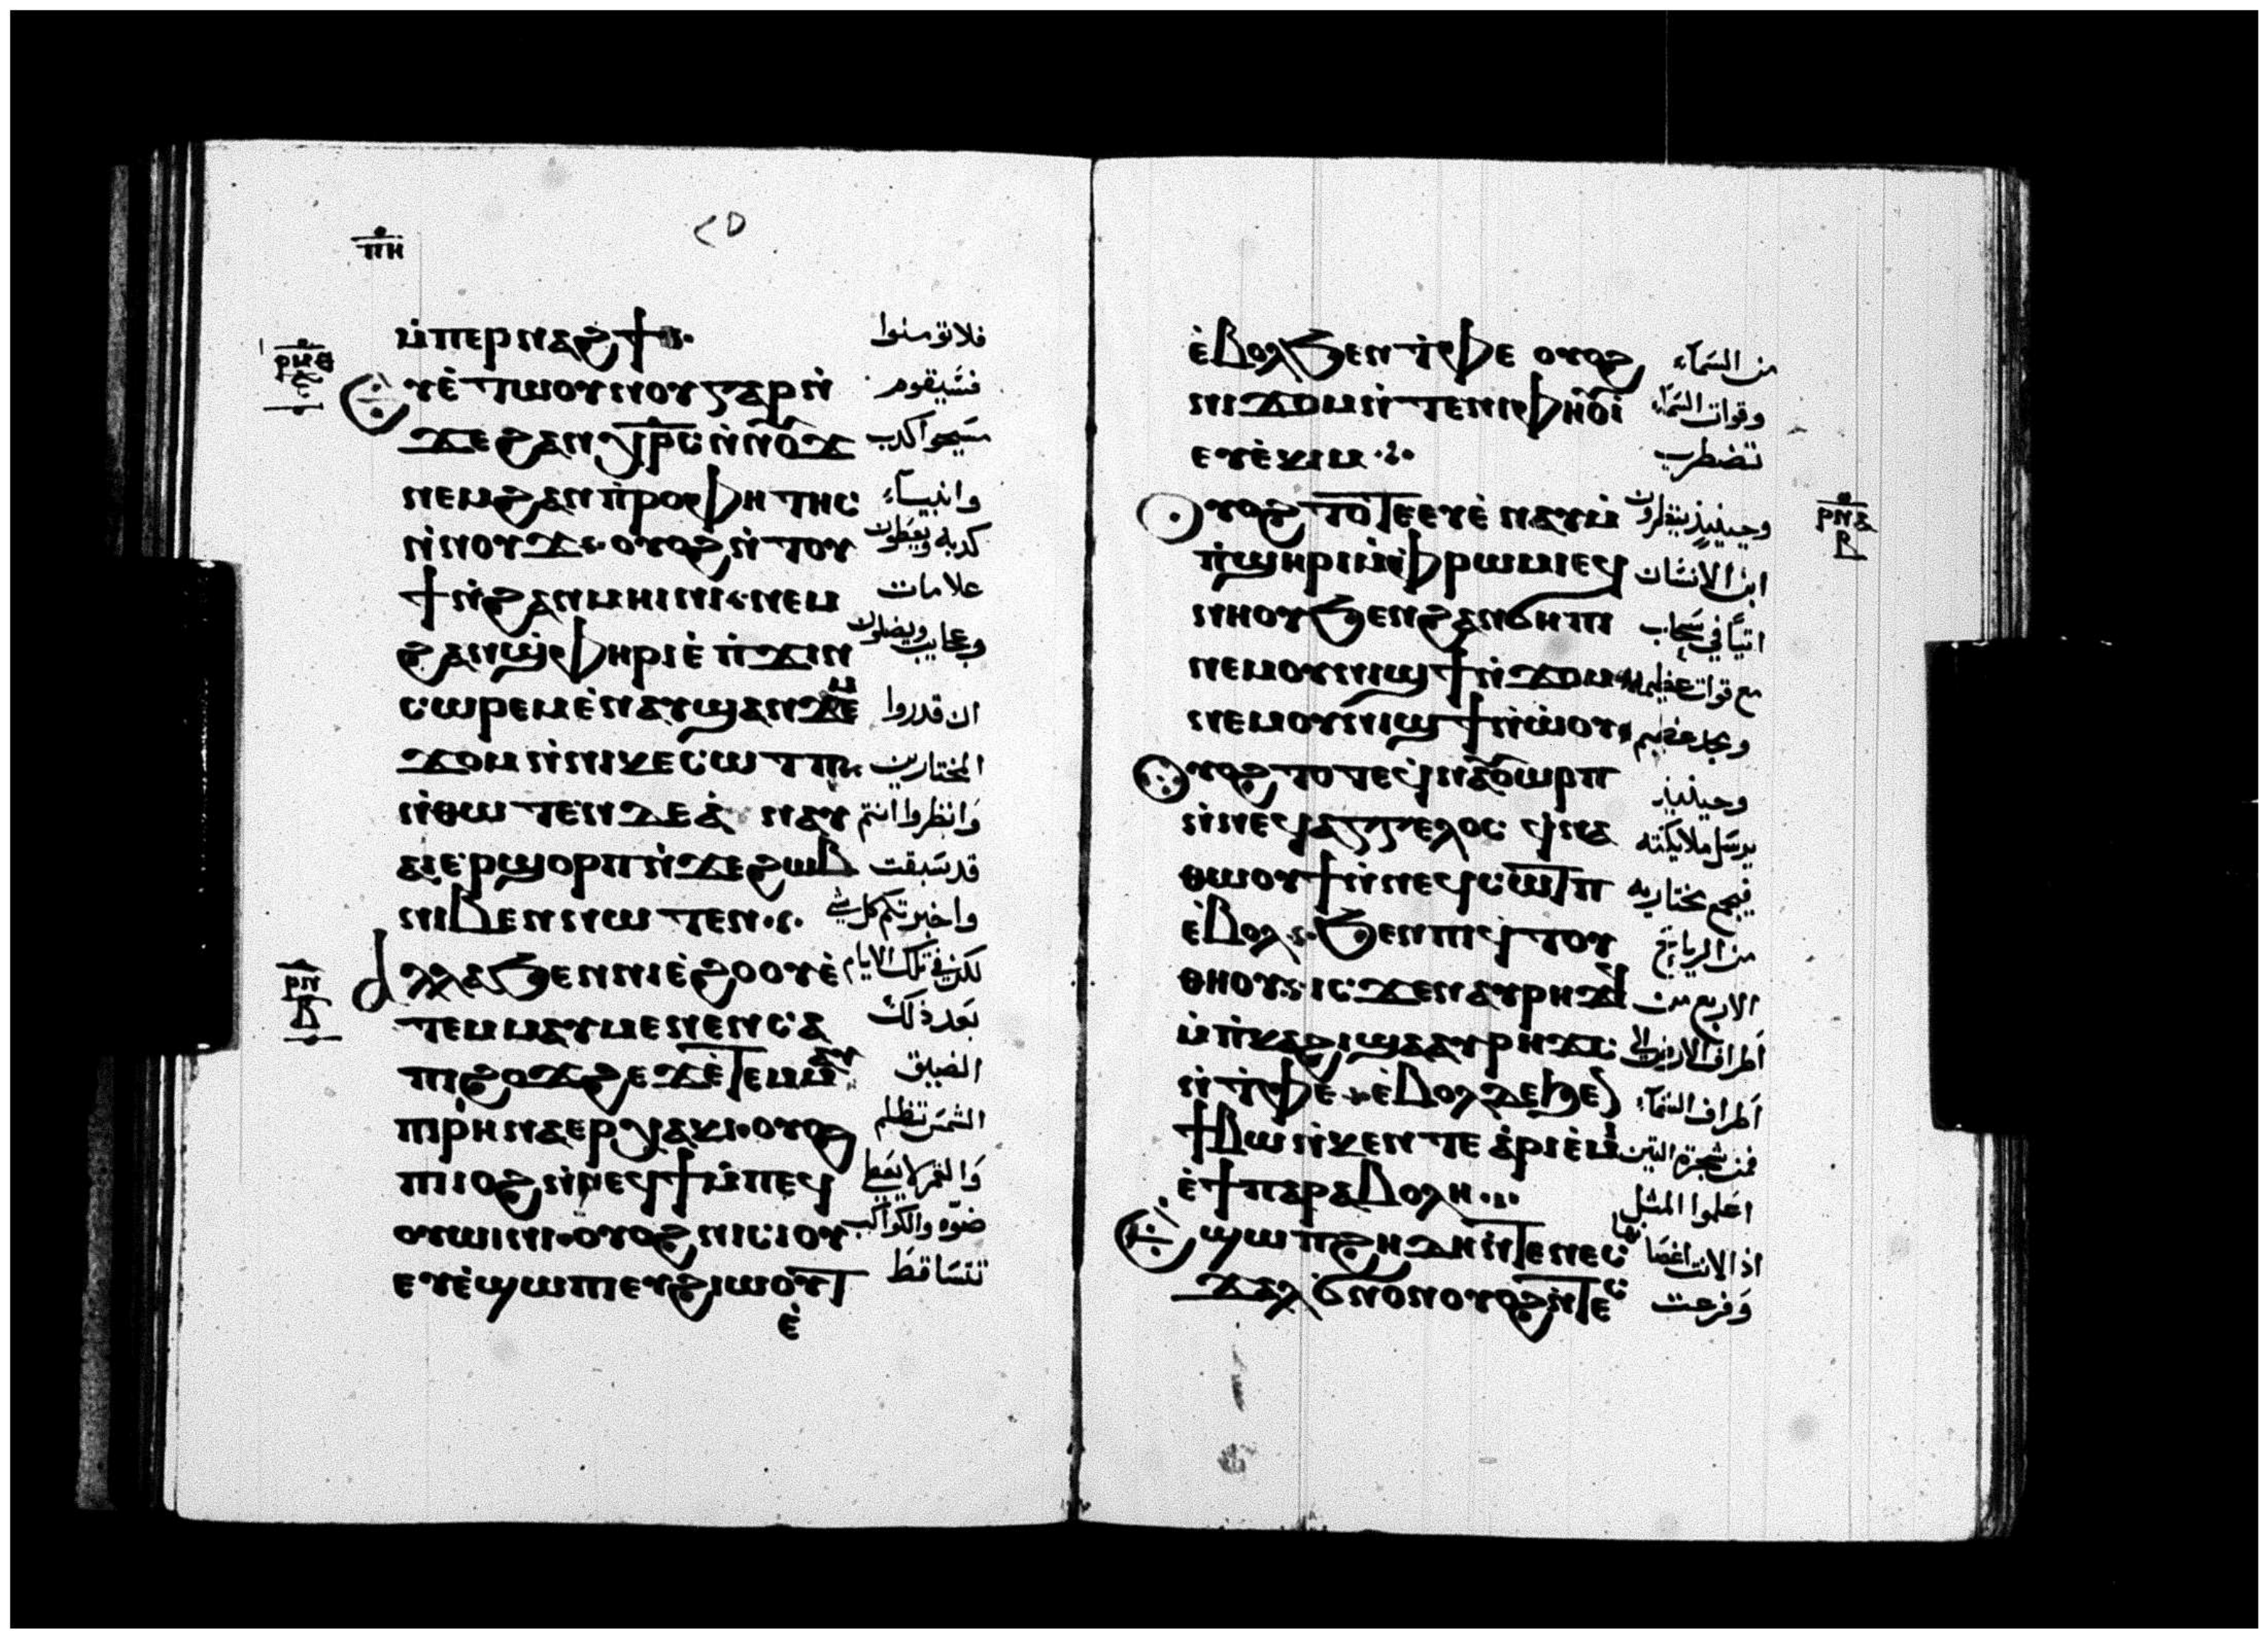 ⲡⲏ
ⲙ̇ⲡⲉⲣⲛⲁϩϯ فلا تومنوا
ⲣⲙⲑ
ⲉⲩⲉ̇ⲧⲱⲟⲩⲛⲟⲩ ⲅⲁⲣ ⲛ̇ فسيقوم
ϫⲉϩⲁⲛⲭⲣ̅ⲥ ⲛ̇ⲛⲟⲩϫ مسيحوا كدب
ⲛⲉⲙϩⲁⲛⲡ̇ⲣⲟⲫⲏⲧⲏⲥ وانبياء
ⲛ̇ⲛⲟⲩϫ ⲟⲩⲟϩ ⲛ̇ⲧⲟⲩ كدبه ويعطون
ϯⲛ̇ϩⲁⲛⲙⲏⲓⲛⲓ ⲛⲉⲙ علامات
ϩⲁⲛϣ̇ⲫⲏⲣⲓ ⲉ̇ⲡ̇ϫⲓⲛ وعجايب ويضلون
ⲥⲱⲣⲉⲙ ⲉ̇ⲛⲁⲩϣⲁⲛϫⲉⲙ ان قدروا
ϫⲟⲙ ⲛ̇ⲛⲓⲕⲉⲥⲱⲧⲡ المختارين
ⲛ̇ⲑⲱⲧⲉⲛ ⲇⲉ ⲁ̇ⲛⲁⲩ وانظروا انتم
ⲁⲓⲉⲣϣⲟⲣⲡ ⲛ̇ϫⲉϩⲱⲃ قد سبقت
ⲛⲓⲃⲉⲛ ⲛⲱⲧⲉⲛ واخبرتكم كل شي
ⲣⲛ
ⲃ
ⲁⲗⲗⲁ ϧⲉⲛ ⲛⲓⲉ̇ϩⲟⲟⲩ ⲉ̇ لكن في تلك الايام
ⲧⲉⲙⲙⲁⲩ ⲙⲉⲛⲉⲛⲥⲁ بعد ذلك
ⲡⲓϩⲟϫϩⲉϫ ⲉ̇ⲧⲉⲙⲙⲁⲩ الضيق
ⲡⲓⲣⲏ ⲛⲁⲉⲣⲭⲁⲕⲓ ⲟⲩⲟϩ الشمس تظلم
ⲡⲓⲓⲟϩ ⲛ̇ⲛⲉϥϯ ⲙ̇ⲡⲉϥ والقمر لا يعطي
ⲟⲩⲱⲓⲛⲓ ⲟⲩⲟϩ ⲛⲓⲥⲓⲟⲩ ضوه والكواكب
ⲉⲩⲉ̇ϣⲱⲡⲓ ⲉⲩϩⲓⲱⲟⲩⲧ تتساقط
ⲉ̇
ⲉ̇ⲃⲟⲗ ϧⲉⲛ ⲧ̇ⲫⲉ ⲟⲩⲟϩ من السماء
ⲛⲓϫⲟⲙ ⲛ̇ⲧⲉⲛⲓⲫⲏⲟⲩⲓ̇ وقوات السماء
ⲉⲩⲉ̇ⲕⲓⲙ تضطرب
ⲣⲛⲁ
ⲃ
ⲟⲩⲟϩ ⲧⲟⲧⲉ ⲉⲩⲉ̇ⲛⲁⲩ ⲙ̇ وحينيذ ينظرون
ⲡ̇ϣⲏⲣⲓ ⲙ̇ⲫⲣⲱⲙⲓ ⲉϥ ابن الانسان
ⲛⲏⲟⲩ ϧⲉⲛ ϩⲁⲛϭⲏⲡⲓ اتيًا في سحاب
ⲛⲉⲙ ⲟⲩⲛⲓϣϯ ⲛ̇ϫⲟⲙ مع قوات عظيمه
ⲛⲉⲙ ⲟⲩⲛⲓϣϯ ⲛ̇ⲱ̇ⲟⲩ ومجد عظيم
ⲟⲩⲟϩ ⲧⲟⲧⲉ ϥ̇ⲛⲁⲟⲩⲱⲣⲡ وحينيذ
ⲛ̇ⲛⲉϥⲁⲅⲅⲉⲗⲟⲥ ϥ̇ⲛⲁ يرسل ملايكته
ⲑⲱⲟⲩϯ ⲛ̇ⲛⲉϥⲥⲱⲧⲡ فيجمع مختاريه
ⲉ̇ⲃⲟⲗ ϧⲉⲛ ⲡⲓϥ̇ⲧⲟⲩ من الرياح
ⲑⲏⲟⲩ ⲓⲥϫⲉⲛ ⲁⲩⲣⲏϫϥ الاربع من
ⲙ̇ⲡ̇ⲕⲁϩⲓ ϣⲁ ⲁⲩⲣⲏϫⲥ اطراف الارض الى
ⲛ̇ⲧ̇ⲫⲉ ⲉ̇ⲃⲟⲗ ⲇⲉ ϧⲉⲛ اطراف السماء
ϯⲃⲱ ⲛ̇ⲕⲉⲛⲧⲉ ⲁ̇ⲣⲓⲉ̇ⲙⲓ فمن شجرة التين
ⲉ̇ϯⲡⲁⲣⲁⲃⲟⲗⲏ اعلموا المثل
ⲉϣⲱⲡ ϩⲏⲇⲏ ⲛ̇ⲧⲉ ⲛⲉⲥ اذا لانت اغصانها
ϫⲁⲗ ϭⲛⲟⲛ ⲟⲩⲟϩ ⲛ̇ⲧⲉⲥ وفرعت